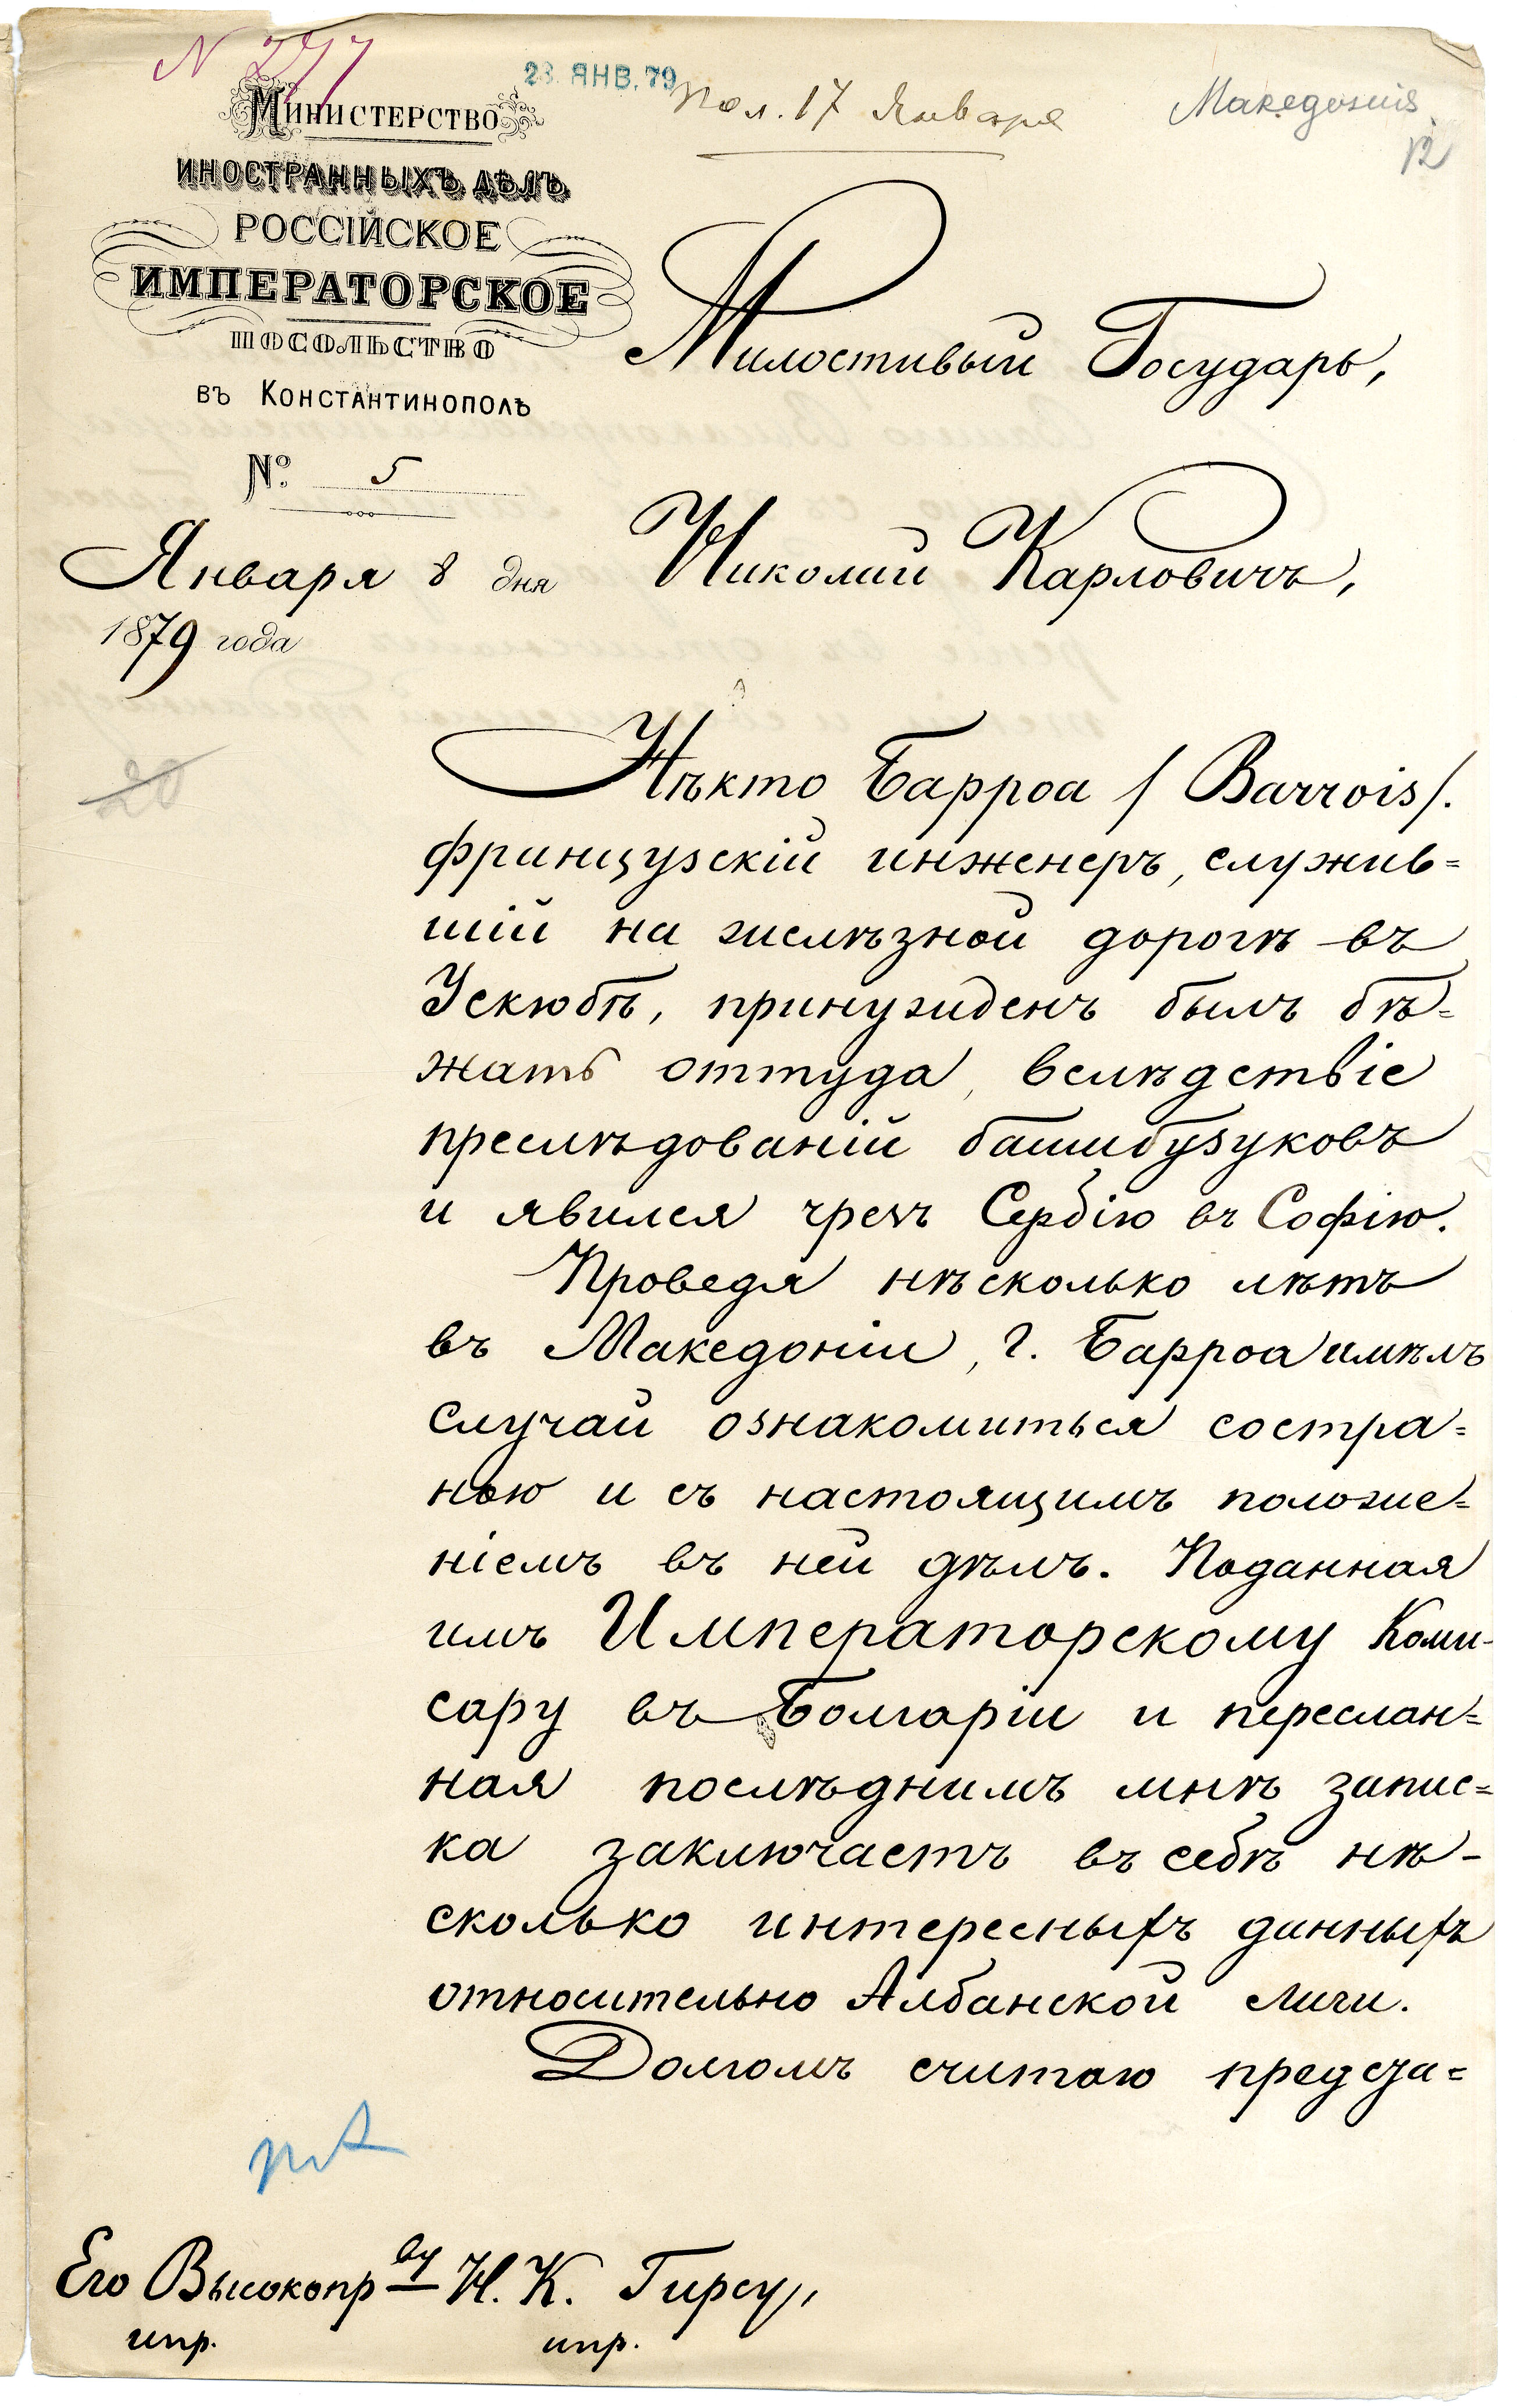 N 277
23 ЯНВ. 79
Пол. 17 Января
Македонія
12
Министерство
ИНОСТРАННЫХЪ ДѢЛЪ
РОССІЙСКОЕ
ИМПЕРАТОРСКОЕ
ПОСОЛЬСТВО
въ Константинополѣ
№ 5
Января 8 дня
1879 года
20
Милостивый Государь,
Николай Карловичъ,
Нѣкто Барроа / Barrois /.
французскій инженеръ, служив=
шій на желѣзной дорогѣ въ
Ускюбѣ, принужденъ былъ бѣ=
жать оттуда, вслѣдствіе
преслѣдованій башибузуковъ
и явился чрезъ Сербію въ Софію.
Проведя нѣсколько лѣтъ
въ Македоніи, г. Барроа имѣлъ
случай ознакомиться со стра=
ною и съ настоящимъ положе=
ніемъ въ ней дѣлъ. Поданная
имъ Императорскому Коми-
сару въ Болгаріи и переслан=
ная послѣднимъ мнѣ запис=
ка заключаетъ въ себѣ нѣ-
сколько интересныхъ данныхъ
относительно Албанской лиги.
Долгомъ считаю предста=
Его Высокопр-ву Н. К. Гирсу,
ипр. ипр.